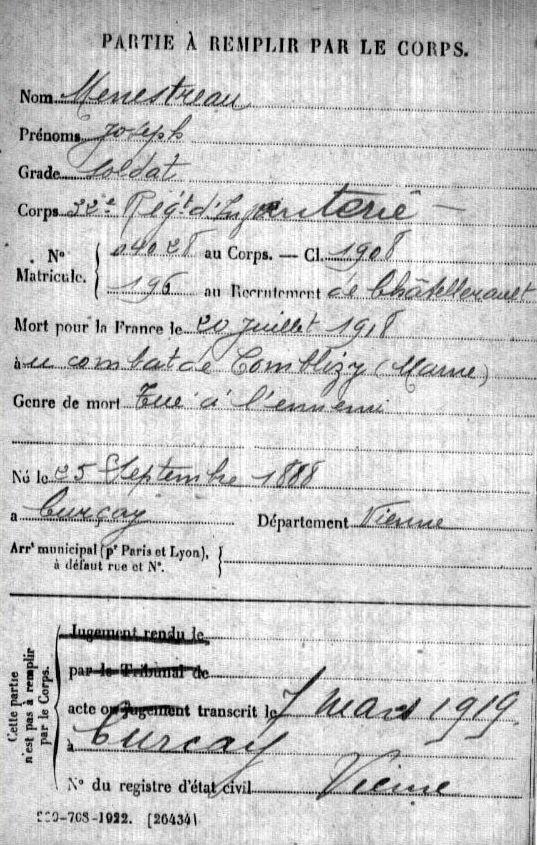 PARTIE À REMPLIR PAR LE CORPS.
Nom Menestreau
Prénoms Joseph
Grade Soldat
Corps 32e Régt d'Infanterie
No Matricule. 04028 au Corps. — Cl. 1908
196 au Recrutement de Châtellerault
Mort pour la France le 20 Juillet 1918
à u combat de Comblizy (Marne)
Genre de mort Tué à l'ennemi
Né le 25 Septembre 1888
a Curçay Département Vienne
Arrt municipal (pr Paris et Lyon),
à défaut rue et No.
Cette partie n'est pas à remplir par le Corps.
Jugement rendu le
par le Tribunal de
acte ou jugement transcrit le 7 Mars 1919
à Curçay
No du registre d'état civil Vienne
-708-1922. [26434]